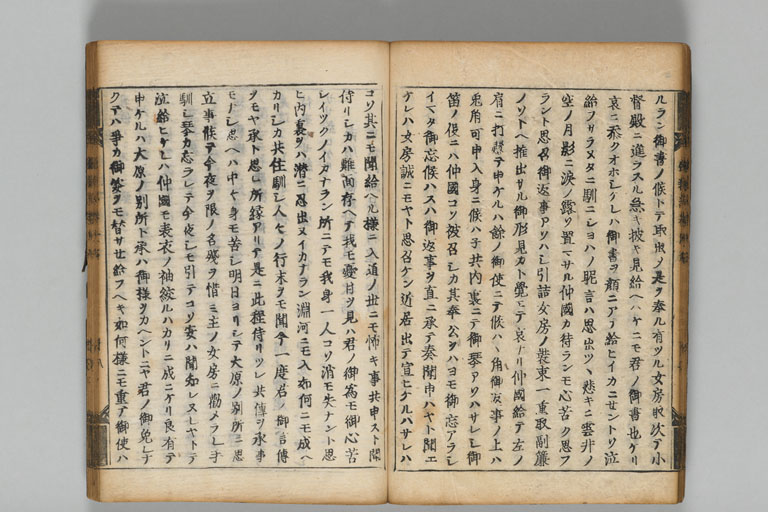 ルラン御書ノ候トテ取出メ是ヲ奉ル有ツル女房取次テ小
督殿ニ進ラスル急キ披キ見給ヘハケニモ君ノ御書也ケリ
哀ニ忝クオホシケレハ御書ヲ顔ニアテ給ヒイカニサントソ泣
給フサラヌタニ馴ニシヨハノ眤言ハ思出ツヽ悲キニ雲井ノ
空ノ月影ニ涙ノ露ソ置マサル仲國カ待ランモ心苦ク思フ
ラント思召御返事アソハシ引詰女房ノ装束一重取副簾
ノソトヘ推出サル御形見カト覺エテ哀ナリ仲國給テ左ノ
肩ニ打懸テ申ケルハ餘ノ御使ニテ候ハヽ角御返事ノ上ハ
兎角可申入身ニ候ハ子共内裏ニテ御琴アソハサレシ御
笛ノ役ニハ仲國コソ被召シカ其奉公ヲハヨモ御忘アラシ
イマタ御忘候ハスハ御返事ヲ直ニ承テ奏聞申ハヤト聞エ
ケレハ女房誠ニモヤト思召ケン近居出テ宣ヒケルハサレハ
コソ其ニモ聞給ヘル様ニ入道ノ世ニモ怖キ事共申スト聞
侍リシカハ難面存ヘテ我モ憂目ヲ見ハ君ノ御為モ御心苦
シイツクノイカナラン所ニテモ我身一人コソ消モ失ナント思
ヒ内裏ヲハ潜ニ忍出ヌイカナラン淵河ニモ入如何ニモ成ヘ
カリシカ共住馴シ人々ノ行末ヲモ聞今一度君ノ御言傳
ヲモヤ承ト思シ所縁アリテ是ニ此程侍リツレ共傳ヲ承事
モナシ思ヘハ中々身モ苦シ明日ヨリシテ大原ノ別所ニ思
立事候テ今夜ヲ限ノ名残ヲ惜ミ主ノ女房ニ勸メラレテ手
馴シ琴カ忘ラレテ今夜シモ引テコソ安ハ聞知レヌレヤトテ
泣給ヒケレハ仲國モ表衣ノ袖絞ルハカリニ成ニケリ良有テ
申ケルハ大原ノ別所ト承ハ御様ヲカヘントニヤ君ノ御免レナ
クテハ爭カ御姿ヲモ替サセ給フヘキ如何様ニモ重テ御使ハ